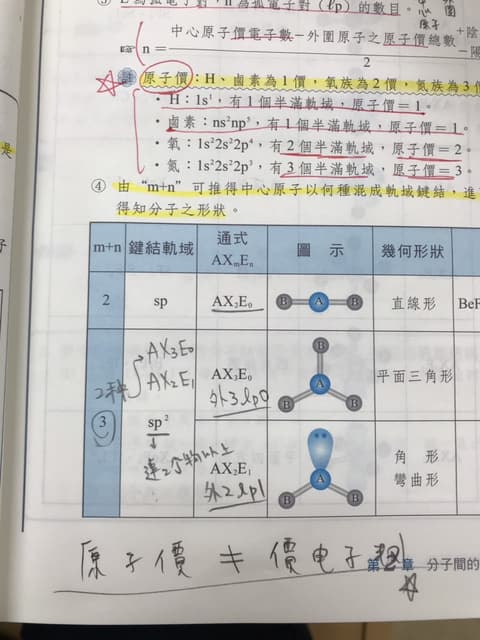 E為孤電子對,n為孤電子對(ℓp)的數目。
中心原子
外圍
n=中心原子價電子數-外圍原子之原子價總數+陰
2
註 原子價:H、鹵素為1價,氧族為2價,氮族為3個
・H:1s¹,有1個半滿軌域,原子價=1。
・鹵素:ns²np⁵,有1個半滿軌域,原子價=1。
・氧:1s²2s²2p⁴,有2個半滿軌域,原子價=2。
・氮:1s²2s²2p³,有3個半滿軌域,原子價=3。
④ 由“m+n”可推得中心原子以何種混成軌域鍵結,進
得知分子之形狀。
m+n 鍵結軌域 通式 AXₘEₙ 圖示 幾何形狀
2 sp AX₂E₀ B A B 直線形 BeF
2種 AX₃E₀
AX₂E₁
3 sp²
AX₃E₀ B A B B 平面三角形
外3 ℓp0
連2個物以上
AX₂E₁ A B B 角形
彎曲形
外2 ℓp1
原子價 ≠ 價电子
第2章 分子間的